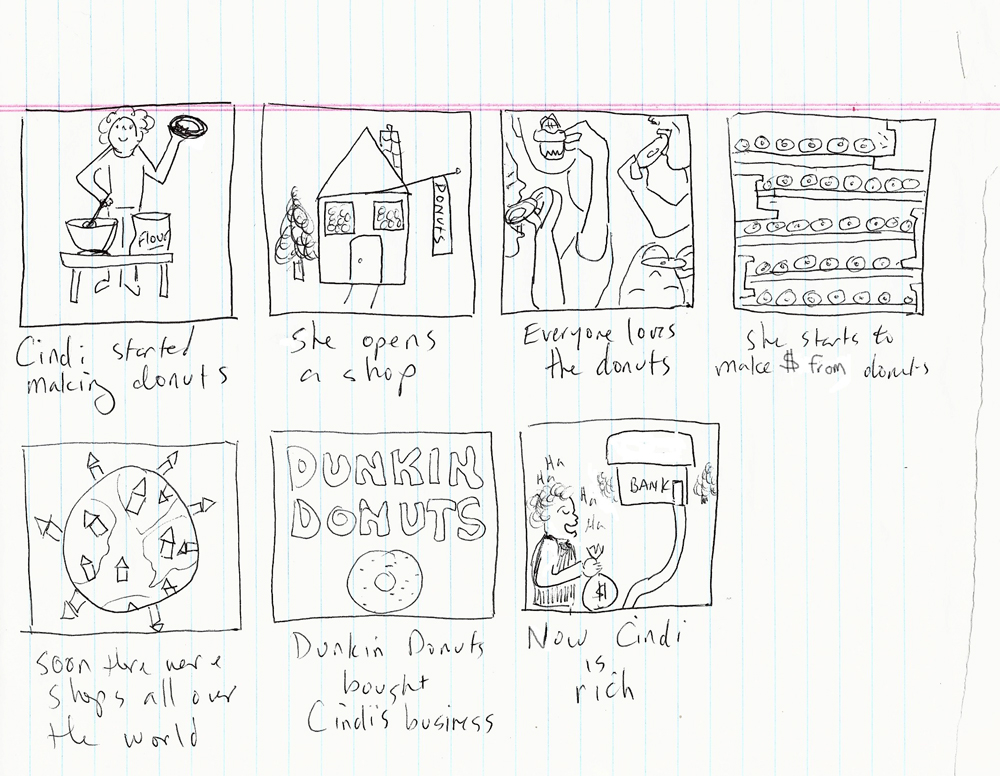 Flour
Cindi started
making donuts
DONUTS
She opens
a shop
Everyone loves
the donuts
she starts to
make $ from donuts
soon there were
shops all over
the world
DUNKIN
DONUTS
Dunkin Donuts
bought
Cindi's business
Ha
Ha
Ha
Ha
BANK
$
Now Cindi
is
rich